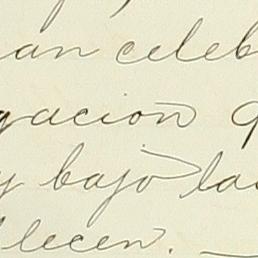 an celeb
gación q
y bajo las
lecen.